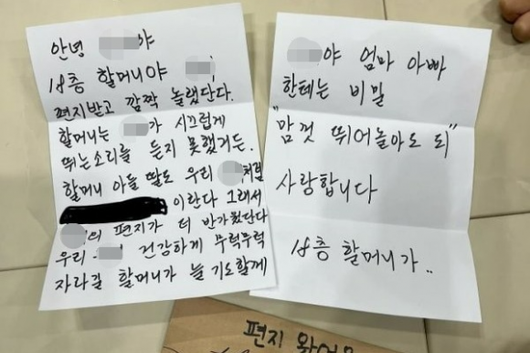 안녕 야
18층 할머니야
편지받고 깜짝 놀랬단다.
할머니는 가 시끄럽게
뛰는소리를 듣지 못했거든.
할머니 아들 딸도 우리 처럼
이란다 그래서
의 편지가 더 반가웠단다
우리 건강하게 무럭무럭
자라길 할머니가 늘 기도할게
야 엄마 아빠
한테는 비밀
"맘껏 뛰어놀아도 되"
사랑합니다
18층 할머니가..
편지 왔어요